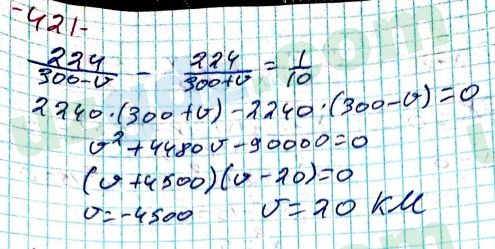 -421-
224/(300-v) - 224/(300+v) = 1/10
2240·(300+v)-2240·(300-v)=0
v²+4480v-90000=0
(v+4500)(v-20)=0
v=-4500 v=20 км